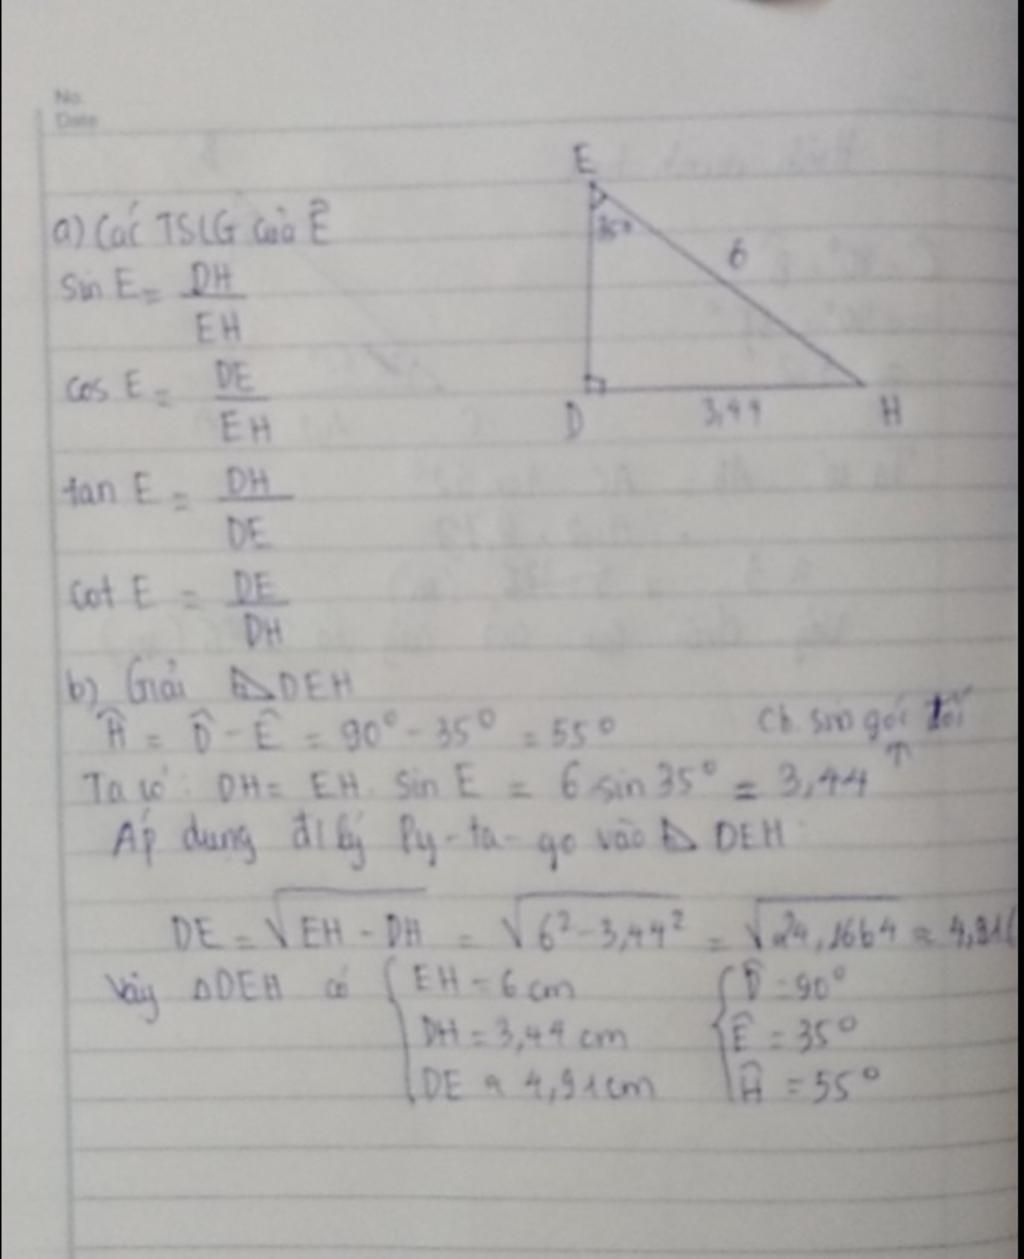 No.
Date
E
a) Các TSLG của Ê
35°
6
Sin E = DH
EH
cos E = DE
EH
D 3,44 H
tan E = DH
DE
cot E = DE
DH
b) Giải △DEH
Ĥ = D̂ - Ê = 90° - 35° = 55°
Ch. sin góc đối
Ta có: DH = EH. Sin E = 6 sin 35° = 3,44
Áp dụng đlý Py-ta-go vào △ DEH:
DE = √EH - DH = √6² - 3,44² = √24,1664 ≈ 4,91
Vậy △DEH có { EH = 6 cm { D̂ = 90°
DH = 3,44 cm Ê = 35°
DE ≈ 4,91cm Ĥ = 55°